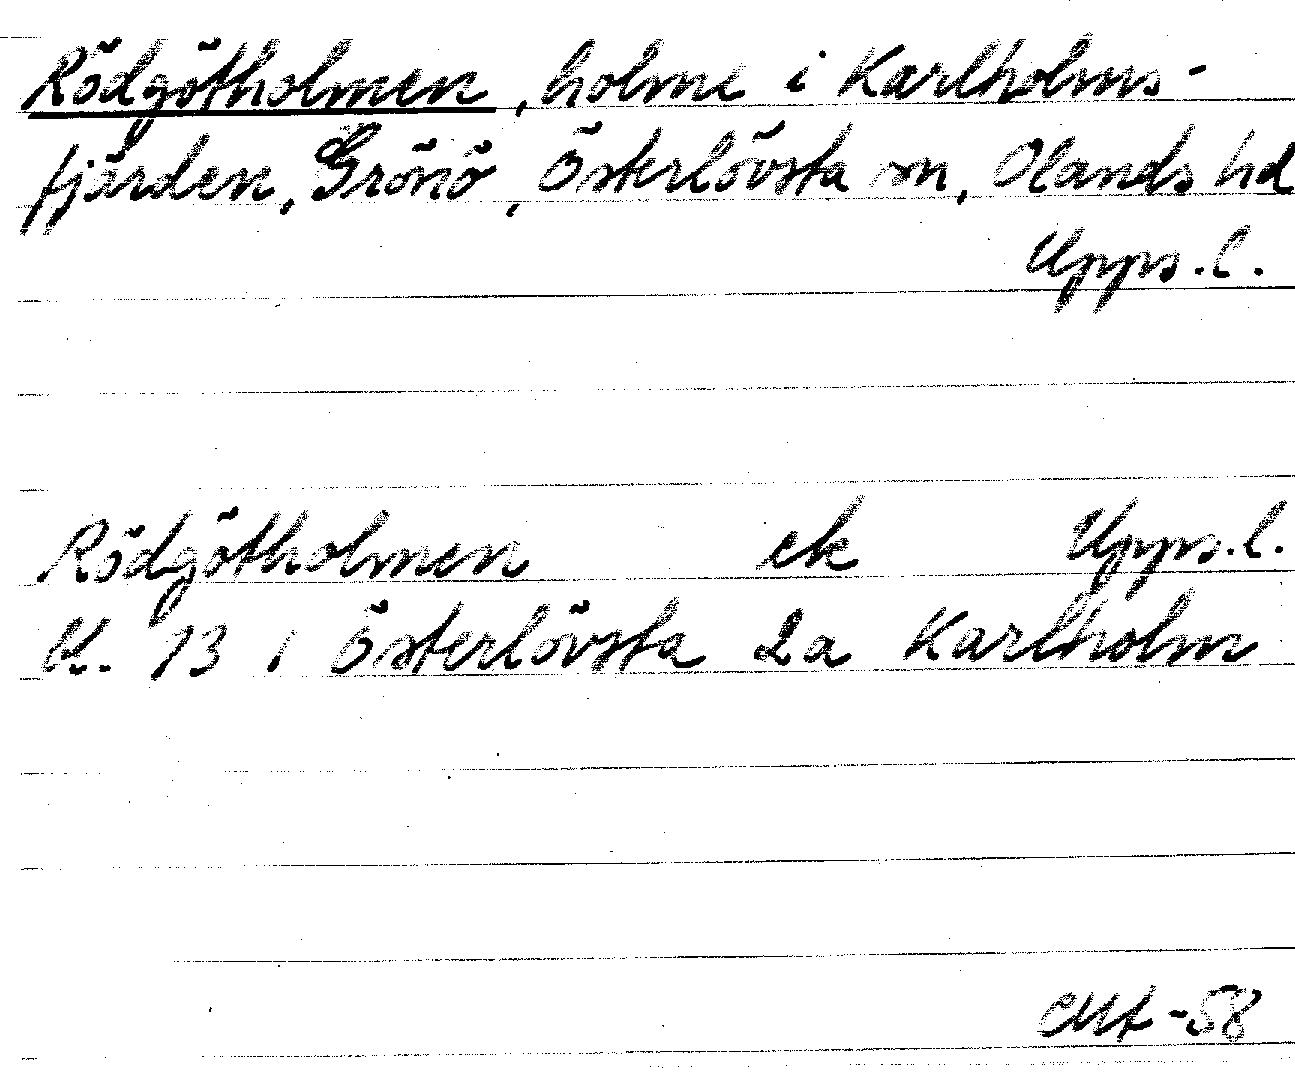 Rödgötholmen, holme i Karlholms-
fjärden, Grönö, Österlövsta sn, Olands hd
Upps.l.
Rödgötholmen ek Upps.l.
bl. 13 i Österlövsta 2a Karlholm
-58